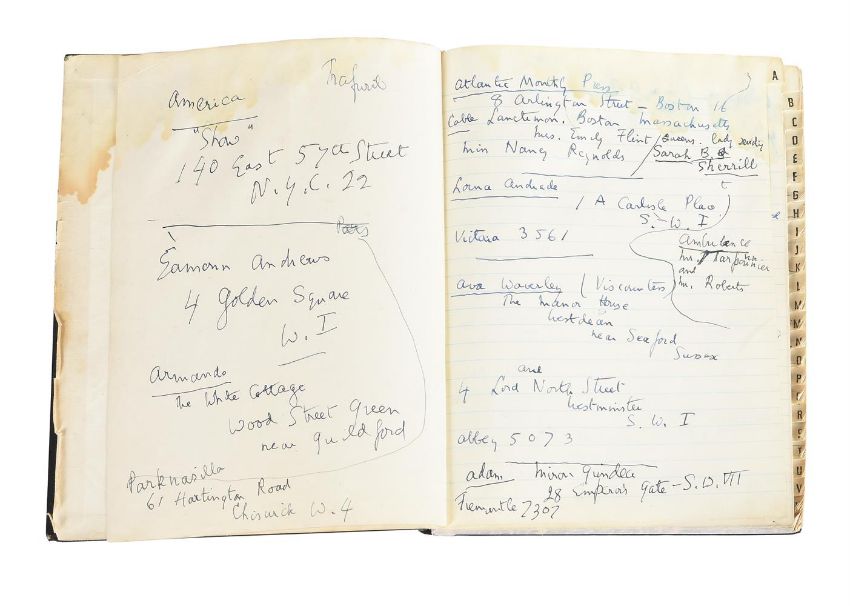 America
"Show"
140 East 57th Street
N.Y.C. 22
Paris
Eamonn Andrews
4 Golden Square
W. I
Armando
The White Cottage
Wood Street Green
near Guildford
Parknasilla
61 Hartington Road
Chiswick W. 4
Atlantic Monthly Press
8 Arlington Street - Boston 16
Cable Lanctumon. Boston Massachusetts
Mrs. Emily Flint /
Miss Nancy Reynolds / Sarah B.
Sherrill
Lorna Andrade
1 A Carlisle Place
S. W. I
Victoria 3561
Ambulance
Mr.
and
Mr. Roberts
Ava Waverley (Viscountess)
The Manor House
Westdean
near Seaford
Sussex
and
4 Lord North Street
Westminster
S. W. I
Abbey 5073
Adam Miron Grindea
28 Emperors Gate - S.W. VII
Fremantle 7307
A
B
C
D
E
F
G
H
I
J
K
L
M
N
O
P
Q
R
S
T
U
V